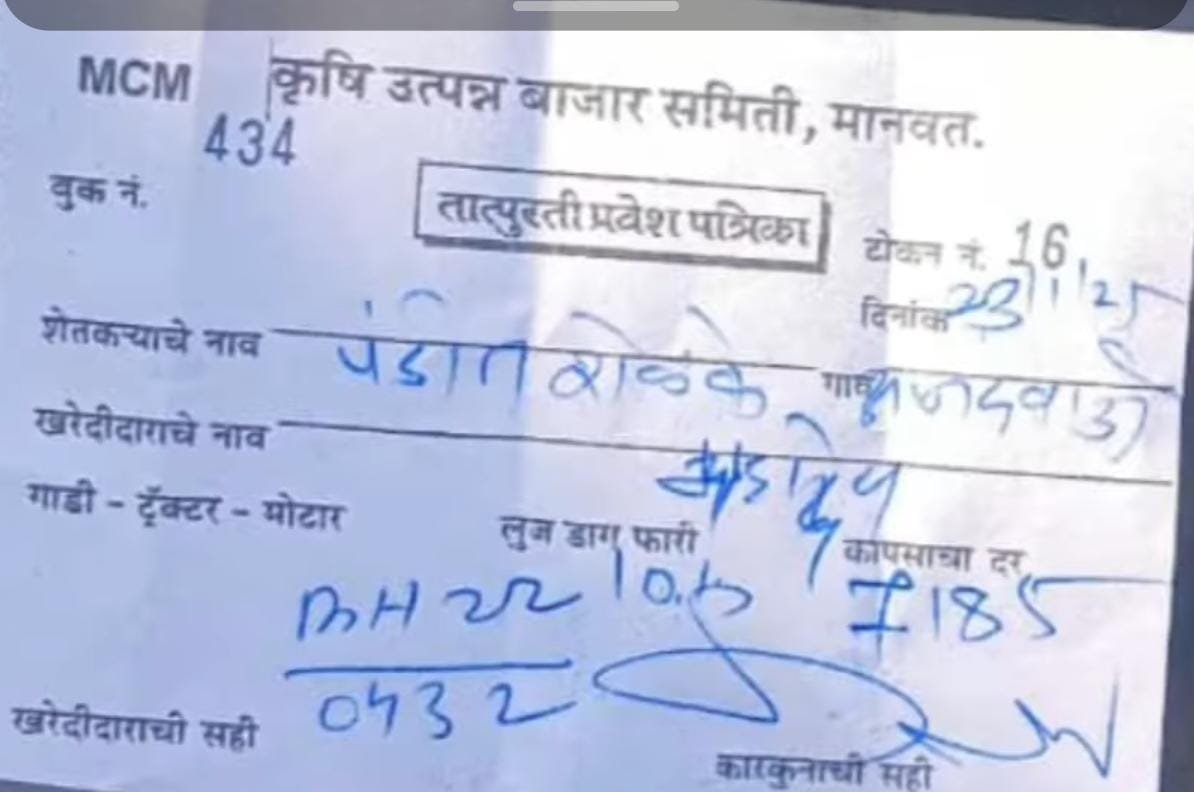 MCM कृषि उत्पन्न बाजार समिती, मानवत.
434
बुक नं.
तात्पुरती प्रवेश पत्रिका
टोकन नं. 16
दिनांक 23/1/25
शेतकऱ्याचे नाव पंडीत शेळके गाव
खरेदीदाराचे नाव
गाडी - ट्रॅक्टर - मोटार लुज डाग फारी कापसाचा दर
MH 22 7185
0432
खरेदीदाराची सही
कारकुनाची सही